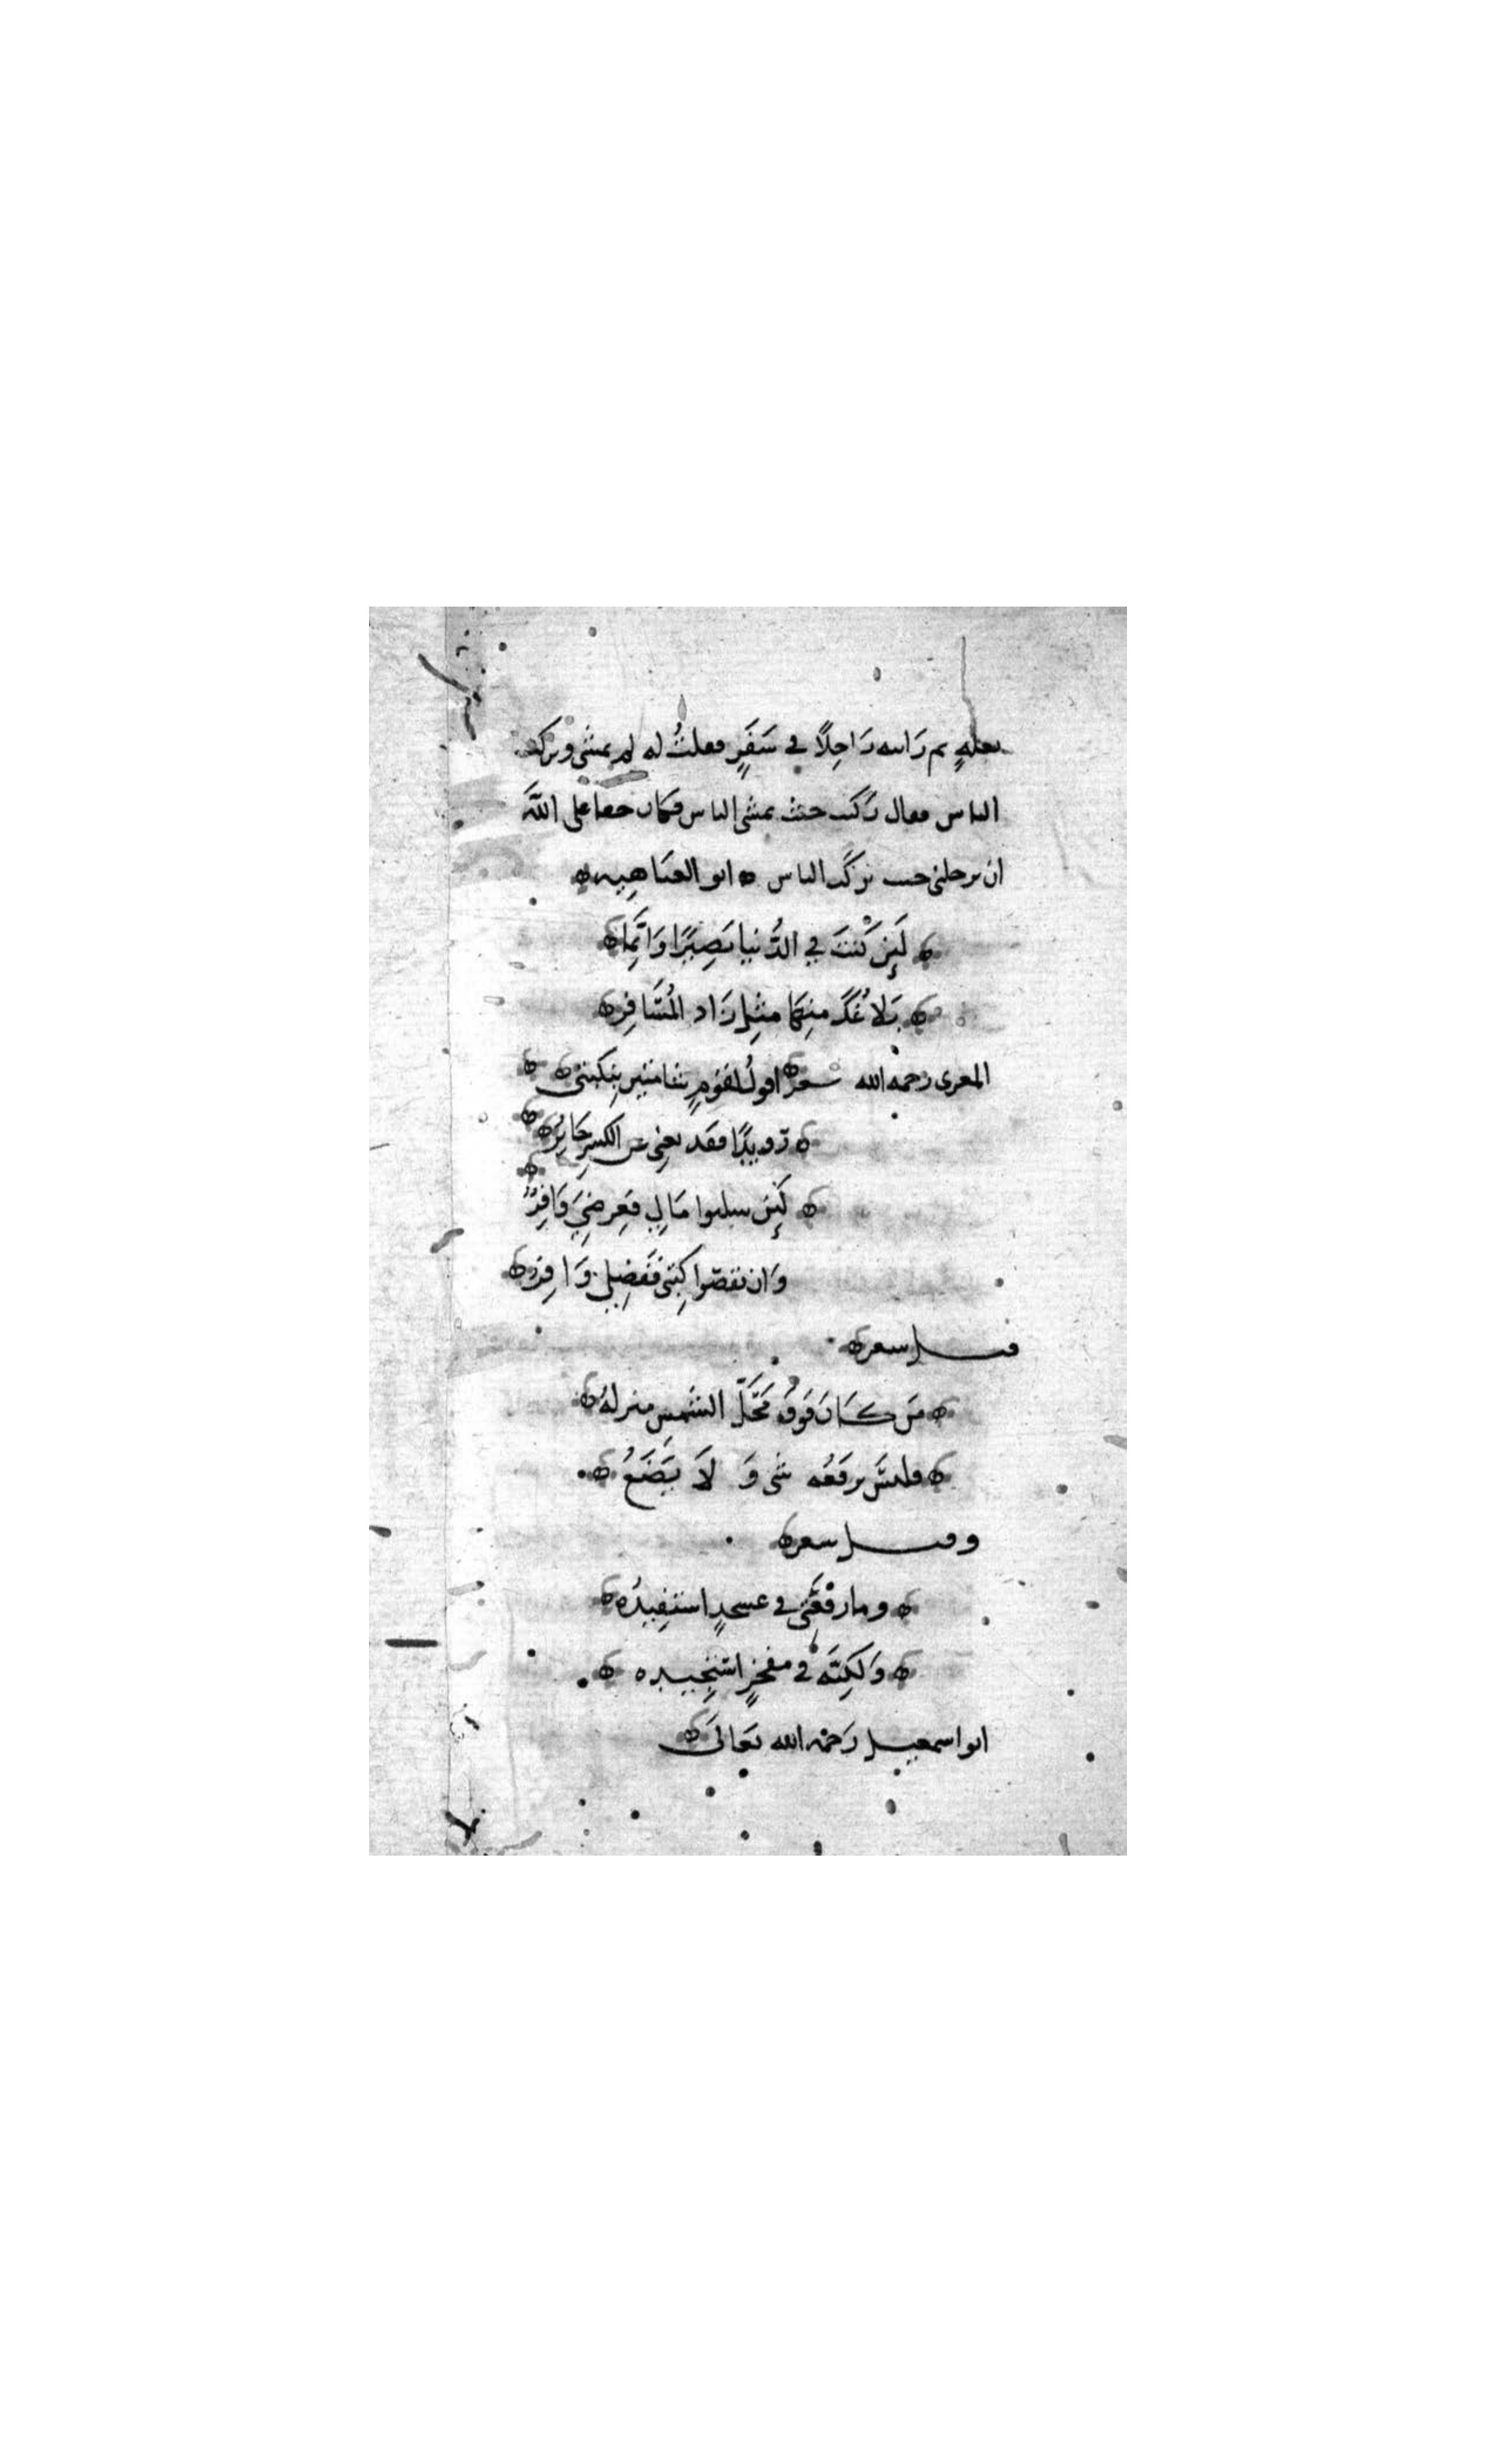 بغلةٍ ثم رَاىته رَاجِلاً في سَفَرٍ فقلتُ له لم يمشى ويركب
الناس فقال رَكبت حيث يمشى الناس فكان حقا على اللهَ
ان يرجلنى حيث يركَب الناس ه ابو العتَاهِيه ه
لَئِن كُنتَ في الدُّنيا بَصِيَرًا وَاِنَّما
بَلاغُكَ منِهَا مثِل زَاد المُسَافِرِ
المعرى رحمه الله شعر اقولُ لقوْمٍ شامتين بنِكبَتى
رُويدًا فقد يغنِى عن الكسرِ جَابِرُ
لَئِن سلبوا مَالِي فَعِرضِيَ وَافِرٌ
وَان نقصّوا كتبى ففَضِلي وَافِرُ
قيل شعر
مَن كَانَ فَوقَ مَحَلَّ الشمسِ منزلهُ
فليسَ يرفَعُه شى وَ لاَ يَضَعُ
وقيل شعر
وما رفعَتى في عسجدٍ استفِيدُه
وَلكِنَّه في مفخرٍ استجِيده
ابو اسمعيل رَحمْه الله تعَالىَ